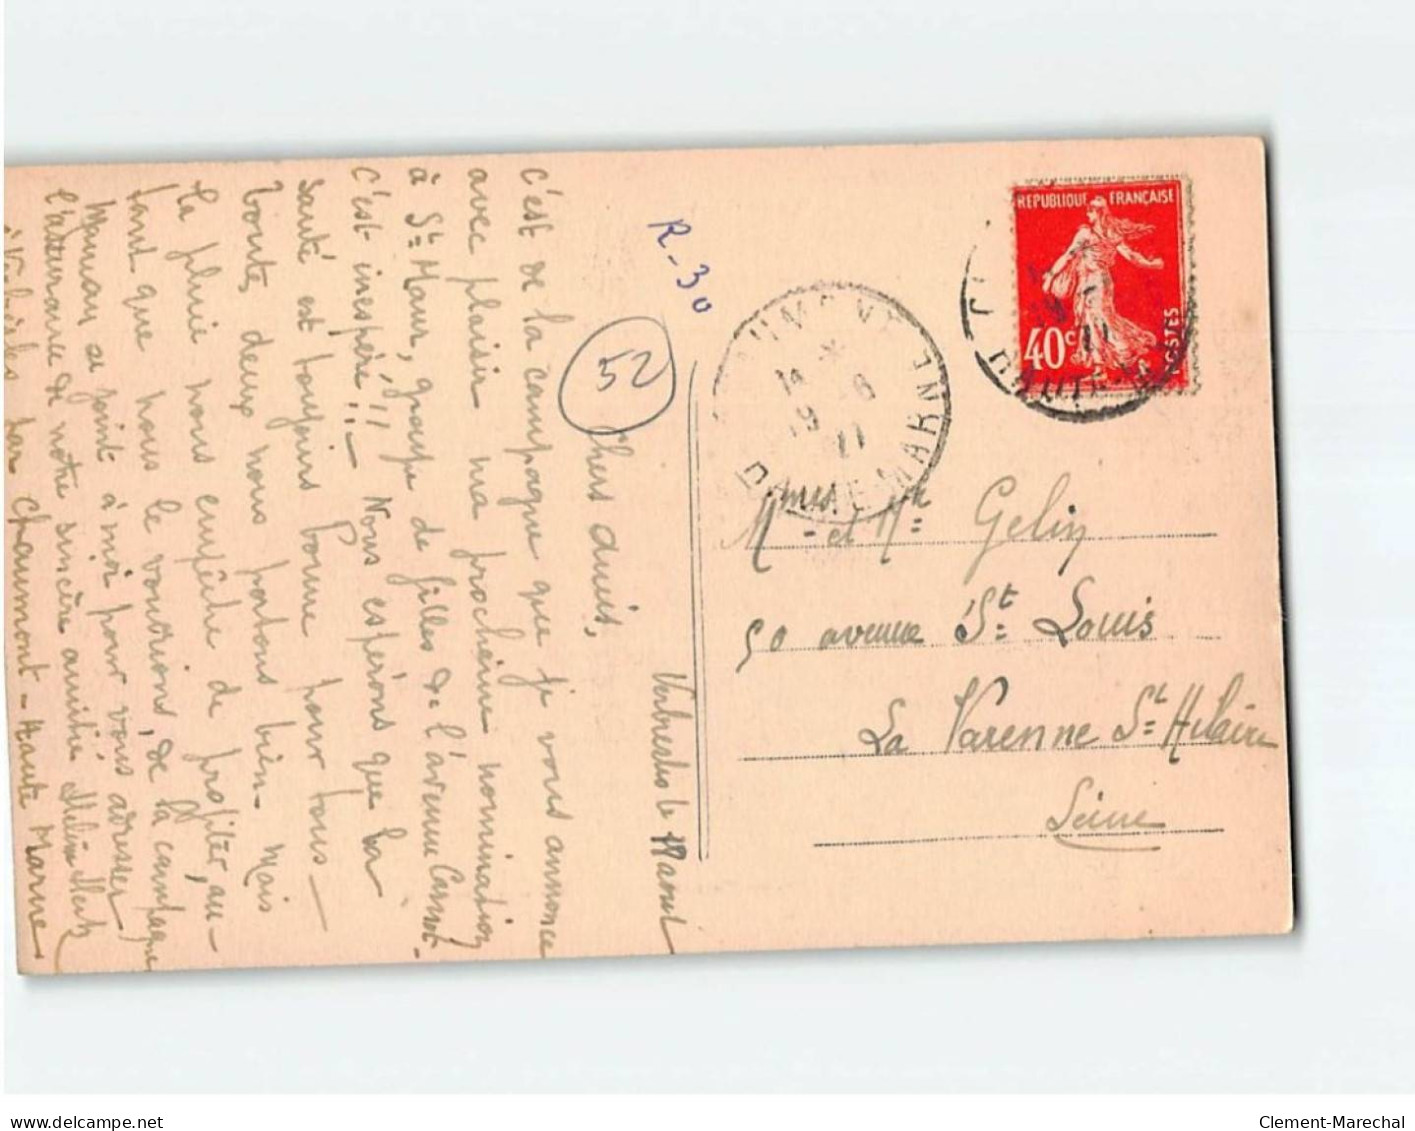 Verbiesles le 18 aout
Chers amis,
c'est de la campagne que je vous annonce
avec plaisir ma prochaine nomination
à St Maur, groupe de filles de l'avenue Carnot -
c'est inespéré!!! Nous espérons que la
santé est toujours bonne pour tous -
toute deux nous portons bien - Mais
la pluie nous empêche de profiter, au-
tant que nous le voudrions, de la campagne
Maman se joint à moi pour vous adresser
l'assurance de notre sincère amitié Hélène
à Verbiesles par Chaumont - Haute Marne
R-30
52
REPUBLIQUE FRANÇAISE
40c
POSTES
HAUTE-MARNE
Mme et Mr Gelin
50 avenue St Louis
La Varenne St Hilaire
Seine
delcampe.net
Clement-Marechal